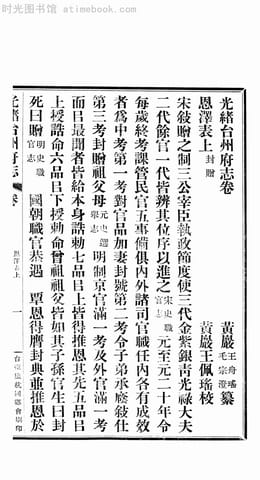 时光图书馆 · www.atimebook.com
光緒台州府志卷
黃巖王舟瑤毛宗澄纂
恩澤表上封贈
黃巖王佩瑤校
宋敘贈之制三公宰臣執政節度使三代金紫銀青光祿大夫
二代餘官一代皆辨其位序以進之宋史職官志元至元二十年令
每歲終考課管民官五事備俱內外諸司官職任內各有成效
者為中考第一考對官品加妻封號第二考令子弟承廕敘仕
第三考封贈祖父母元史選舉志明制京官滿一考及外官滿一考
而以最聞者皆給本身誥勅七品以上皆得推恩其先五品以
上授誥命六品以下授勅命曾祖祖父皆如其子孫官生曰封
死曰贈明史職官志 國朝職官恭遇 覃恩得膺封典重推恩於
光緒台州府志 卷
恩澤表上
一